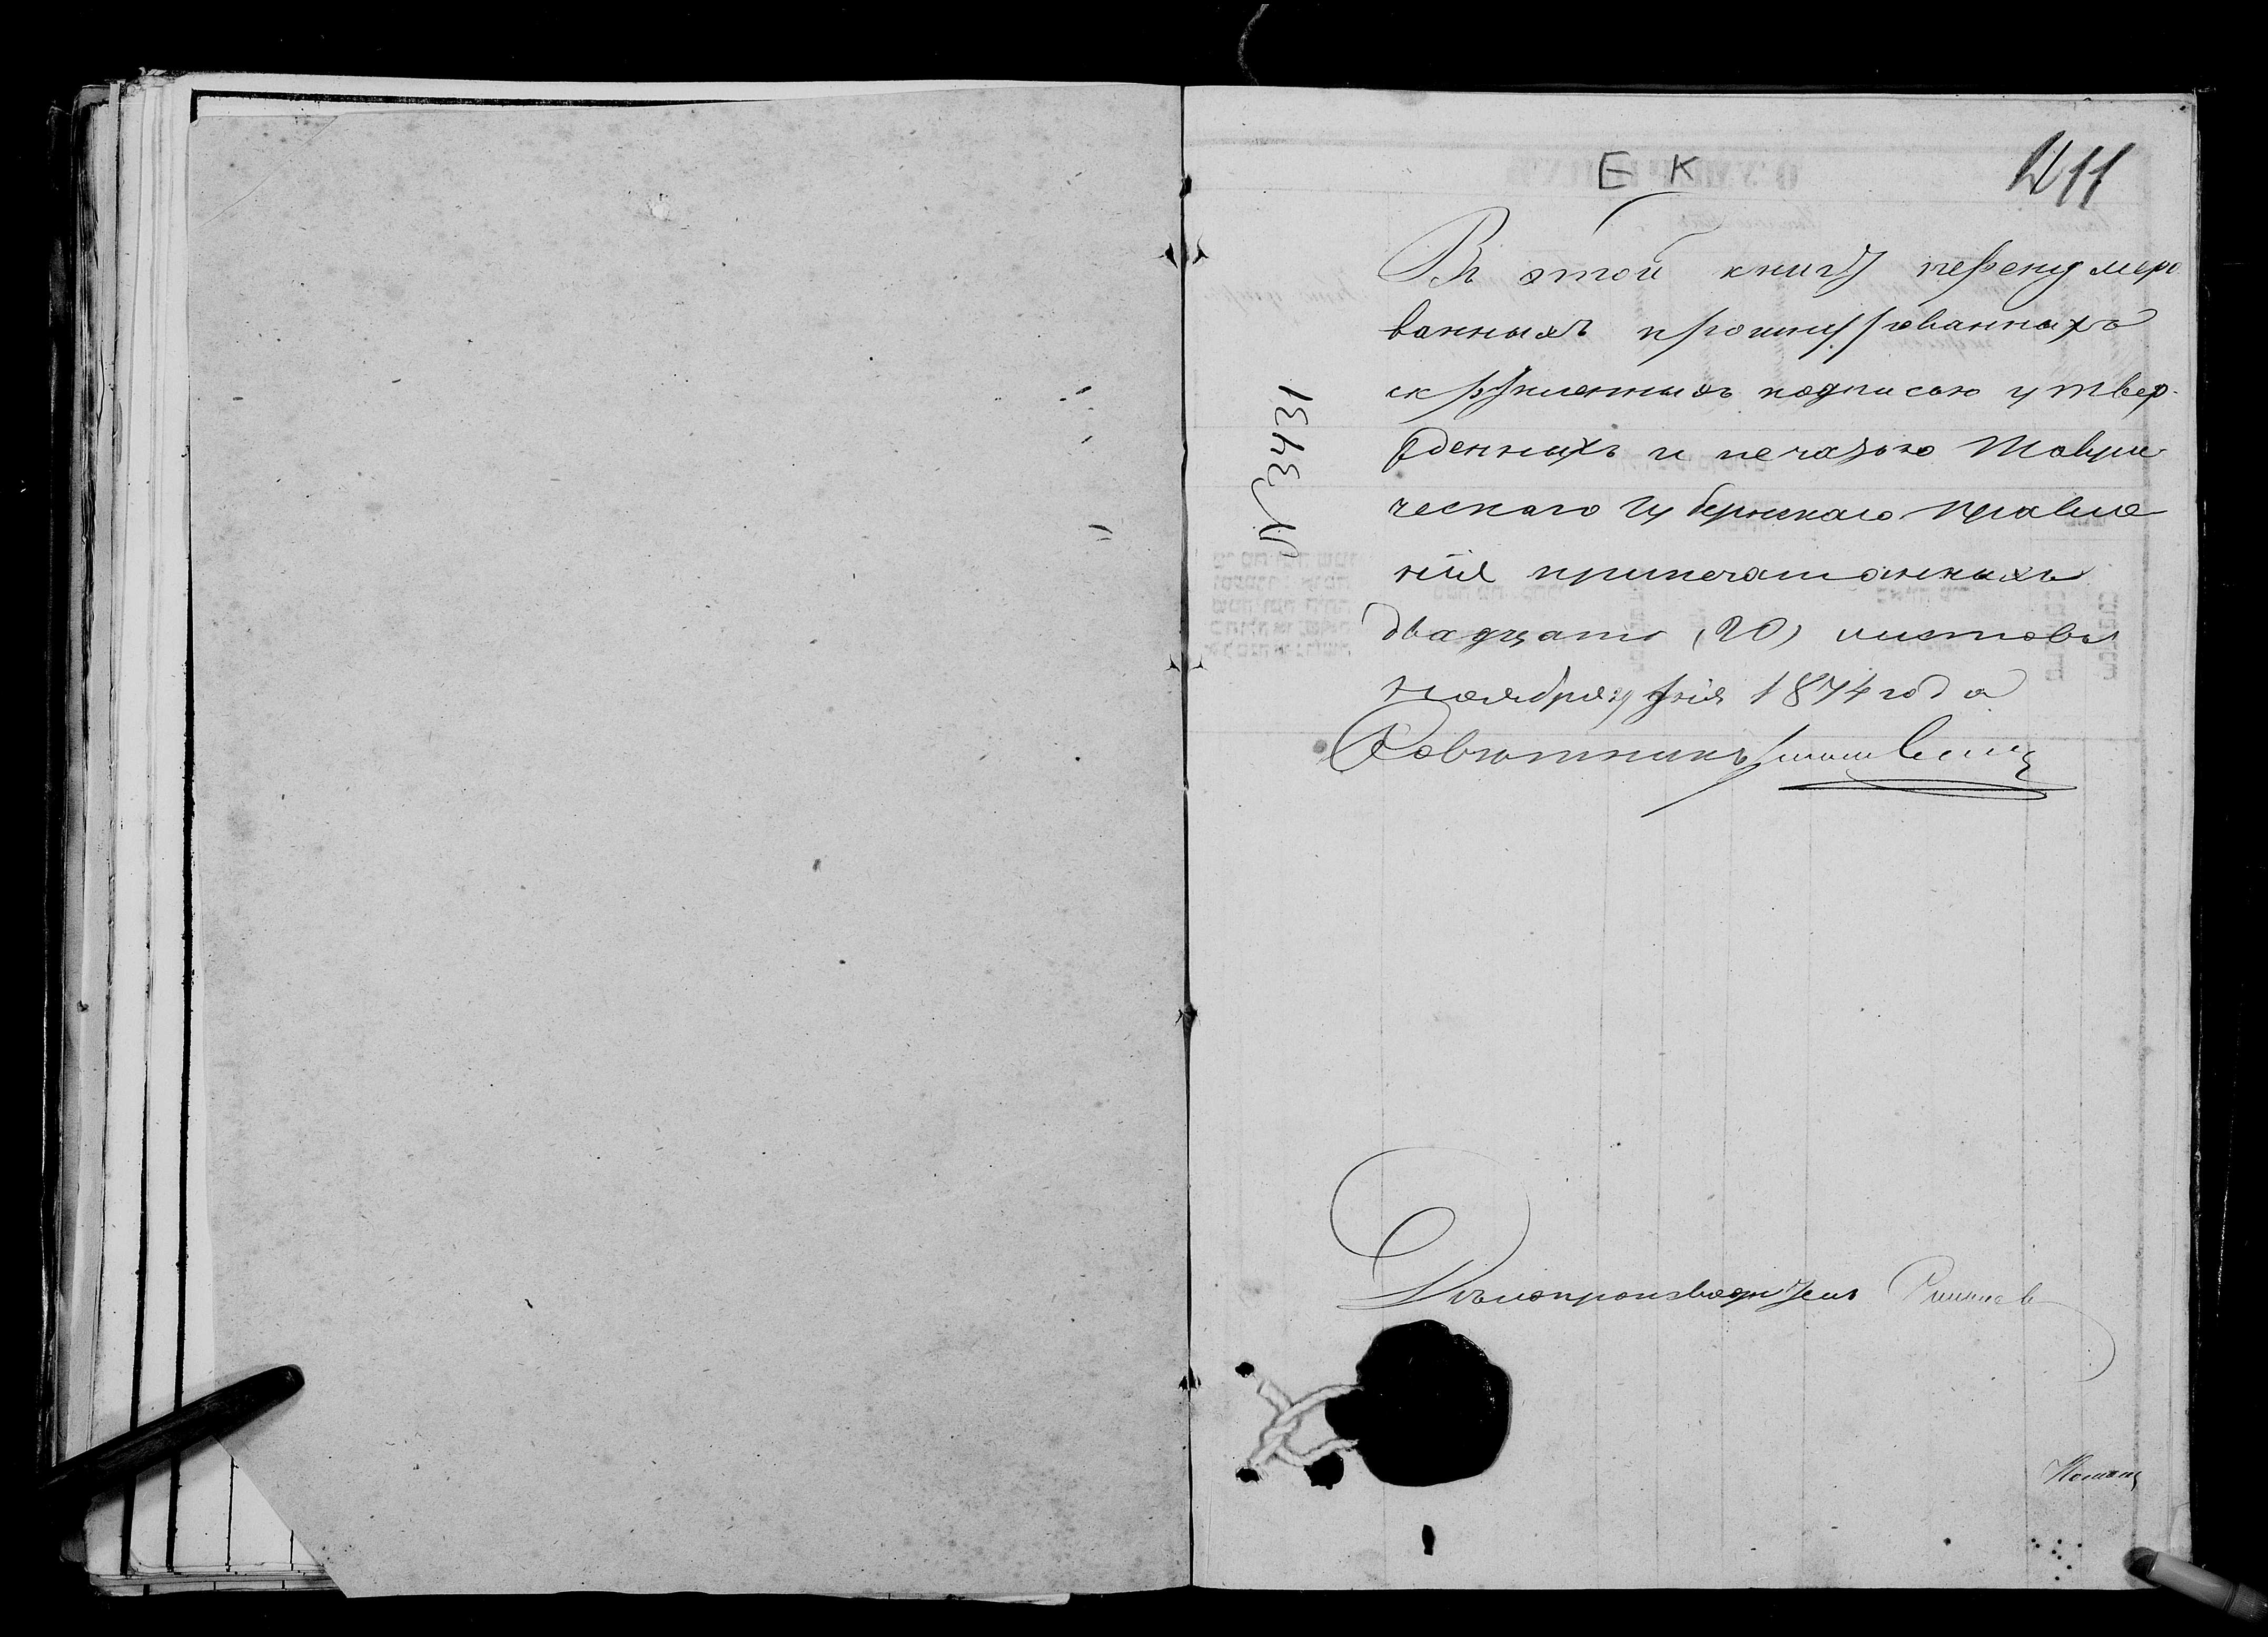 Е К
11
Въ этой книгѣ перенумеро
ванныхъ прошнурованныхъ
скрѣпленныхъ подписью утвер-
жденныхъ и печатью Таври-
ческаго Губернскаго Правле
нія припечатанныхъ
двадцать (20) листовъ
ноября дня 1874 года
Совѣтникъ
Дѣлопроизводитель
N 13431